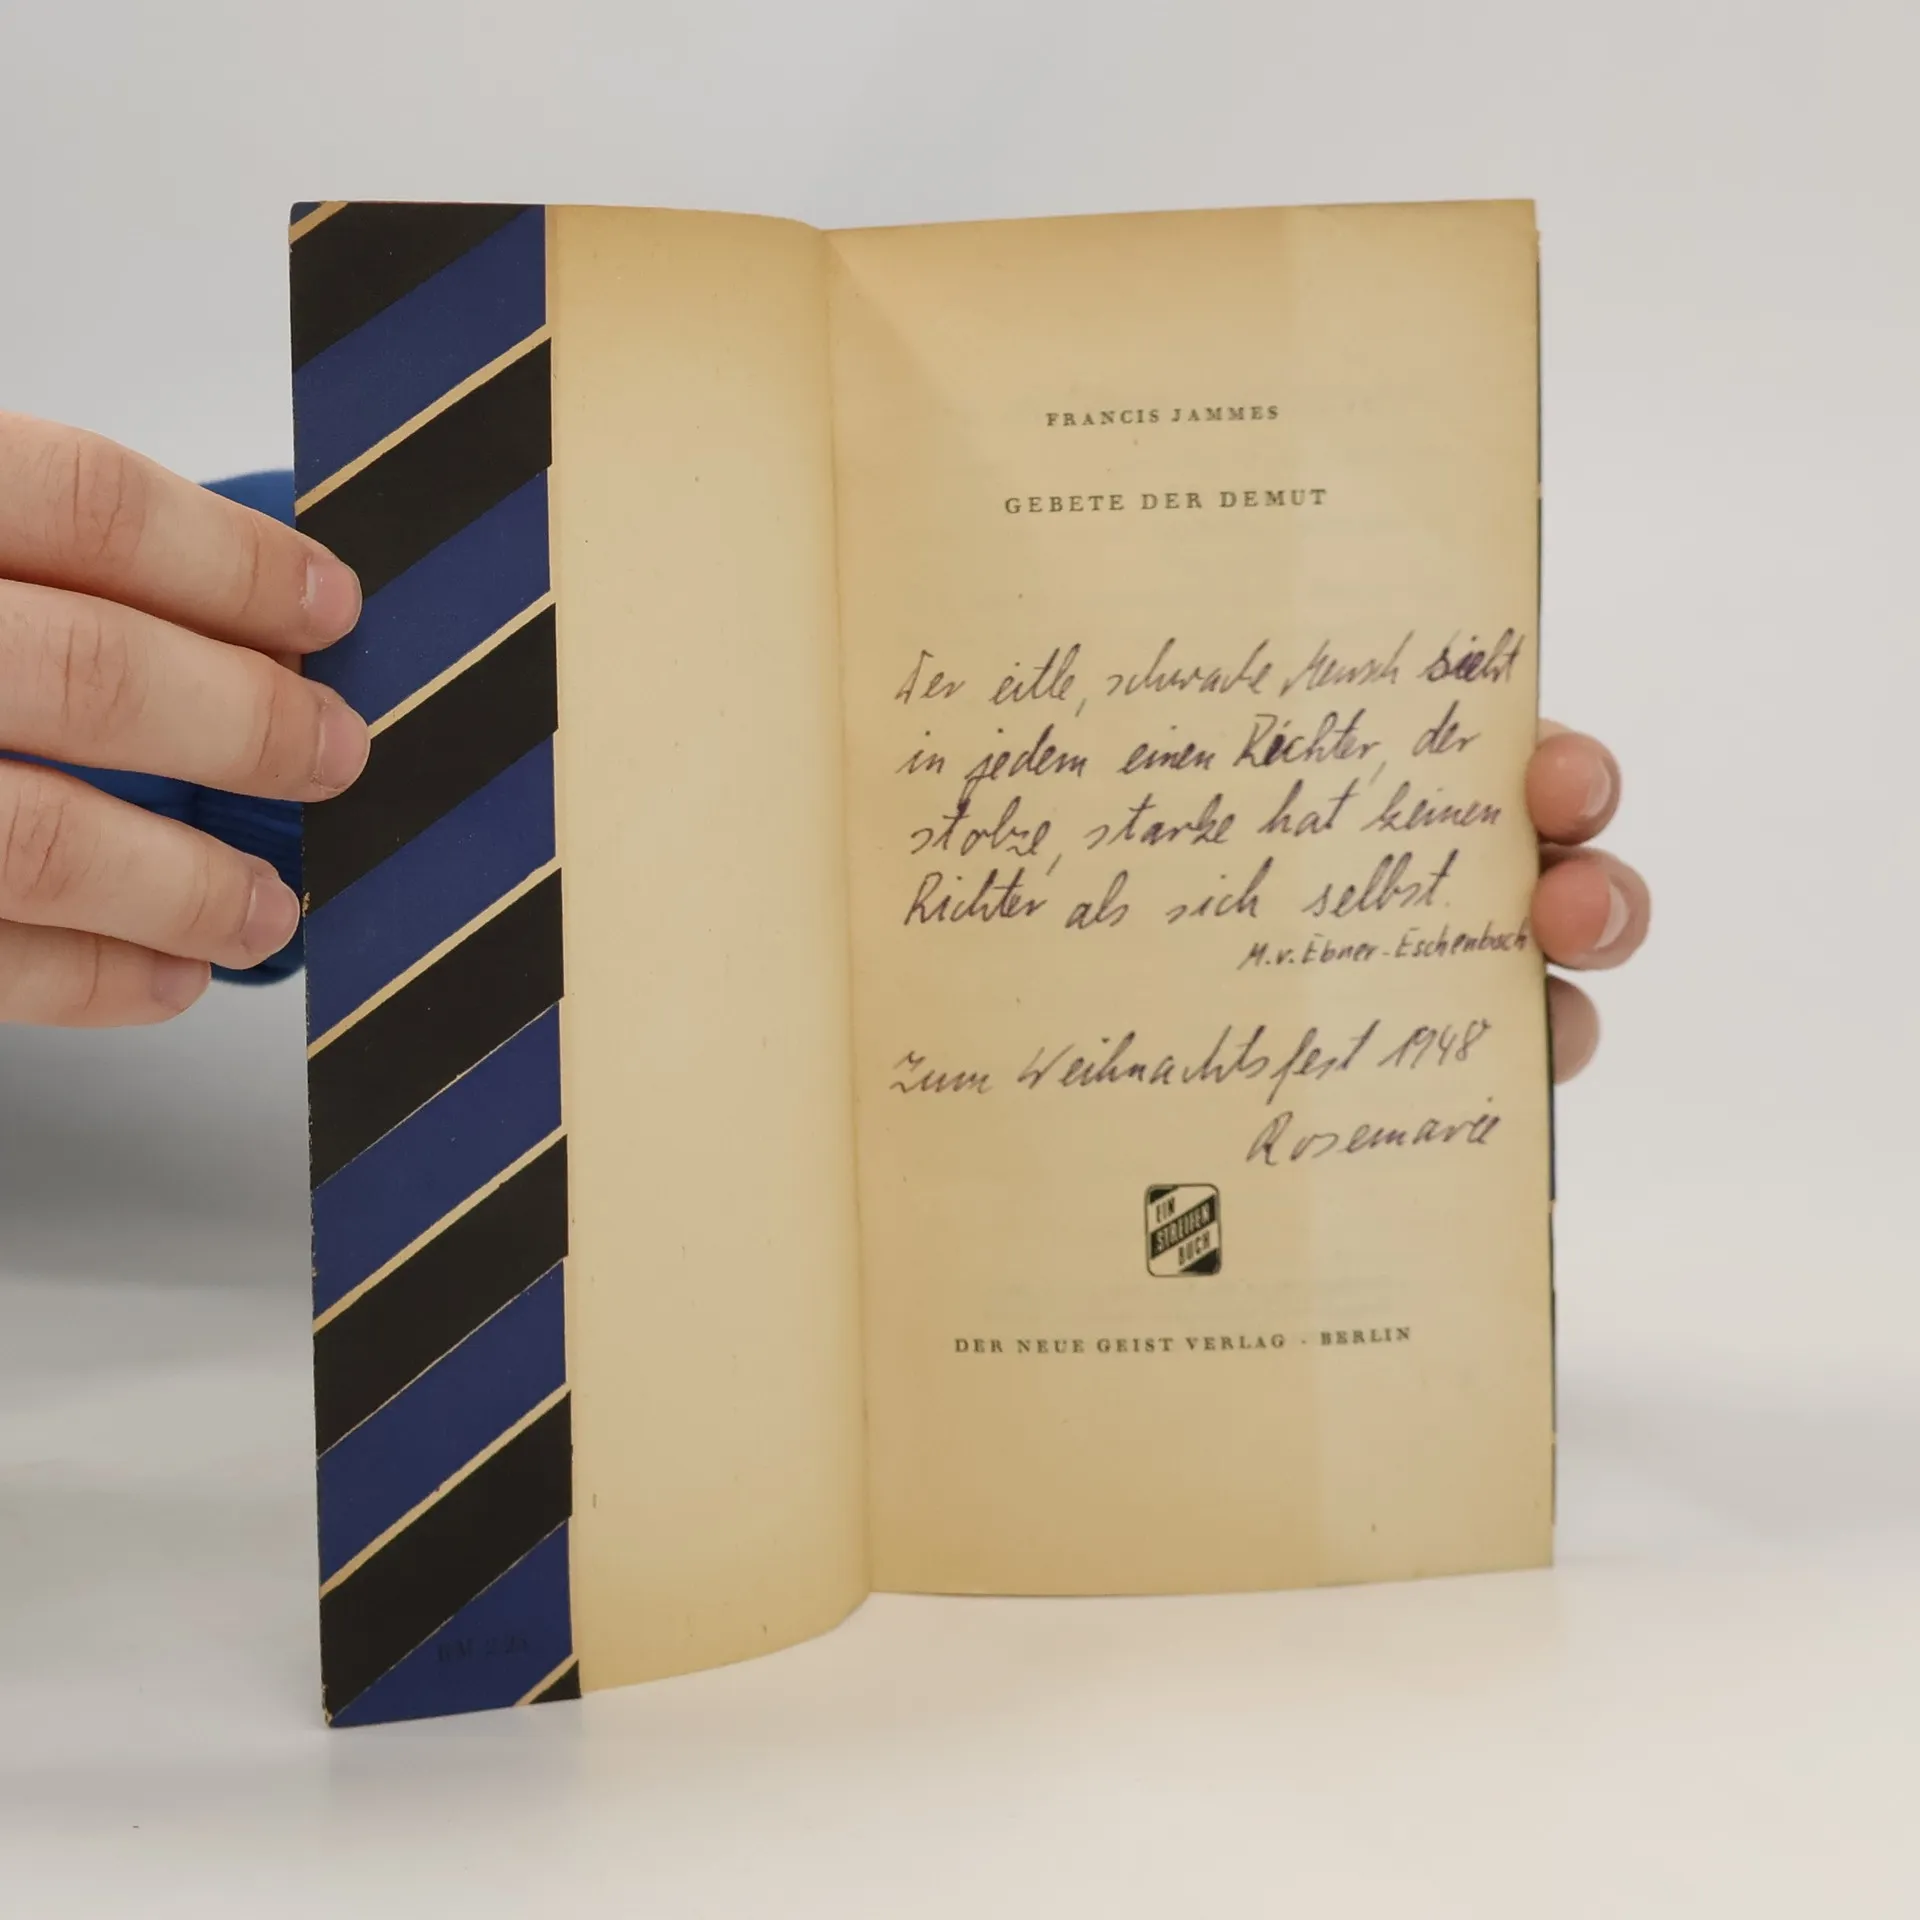 FRANCIS JAMMES
GEBETE DER DEMUT
Der eitle, schwache Mensch sieht
in jedem einen Richter, der
stolze, starke hat keinen
Richter als sich selbst.
M.v.Ebner-Eschenbach
Zum Weihnachtsfest 1948
Rosemarie
EIN
STREIFEN
BUCH
DER NEUE GEIST VERLAG · BERLIN